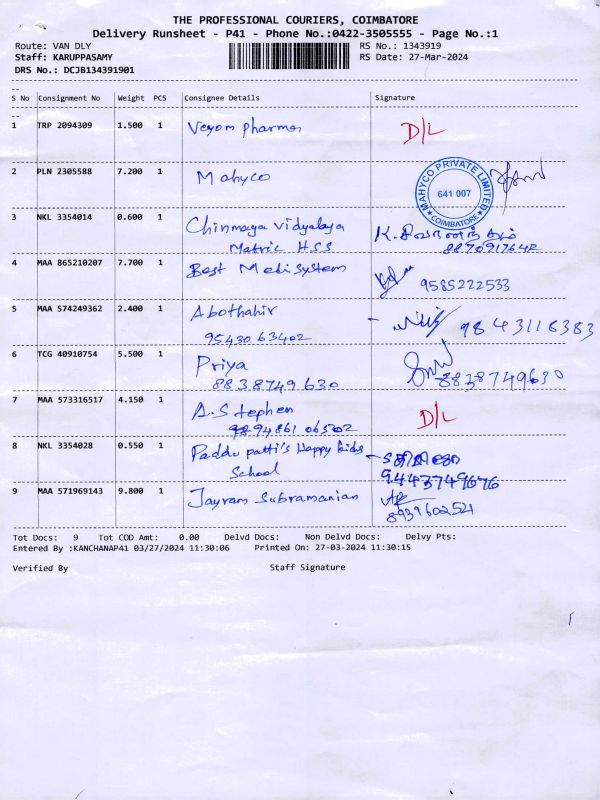 THE PROFESSIONAL COURIERS, COIMBATORE
Delivery Runsheet - P41 - Phone No.:0422-3505555 - Page No.:1
Route: VAN DLY RS No.: 1343919
Staff: KARUPPASAMY RS Date: 27-Mar-2024
DRS No.: DCJB134391901
S No Consignment No Weight PCS Consignee Details Signature
1 TRP 2094309 1.500 1 Veyom pharma D/L
2 PLN 2305588 7.200 1 Mahyco
MAHYCO PRIVATE LIMITED
641 007
COIMBATORE
3 NKL 3354014 0.600 1 Chinmaya vidyalaya
Matric H.SS 8870917642
4 MAA 865210207 7.700 1 Best Medisystem 9585222533
5 MAA 574249362 2.400 1 Abothahir 9843118383
95430 63402
6 TCG 40910754 5.500 1 Priya
8838749630 8838749630
7 MAA 573316517 4.150 1 A.Stephen D/L
8 NKL 3354028 0.550 1 Paddu patti's Happy kids
School 9443749676
9 MAA 571969143 9.800 1 Jayram Subramanian
8939602521
Tot Docs: 9 Tot COD Amt: 0.00 Delvd Docs: Non Delvd Docs: Delvy Pts:
Entered By :KANCHANAP41 03/27/2024 11:30:06 Printed On: 27-03-2024 11:30:15
Verified By Staff Signature